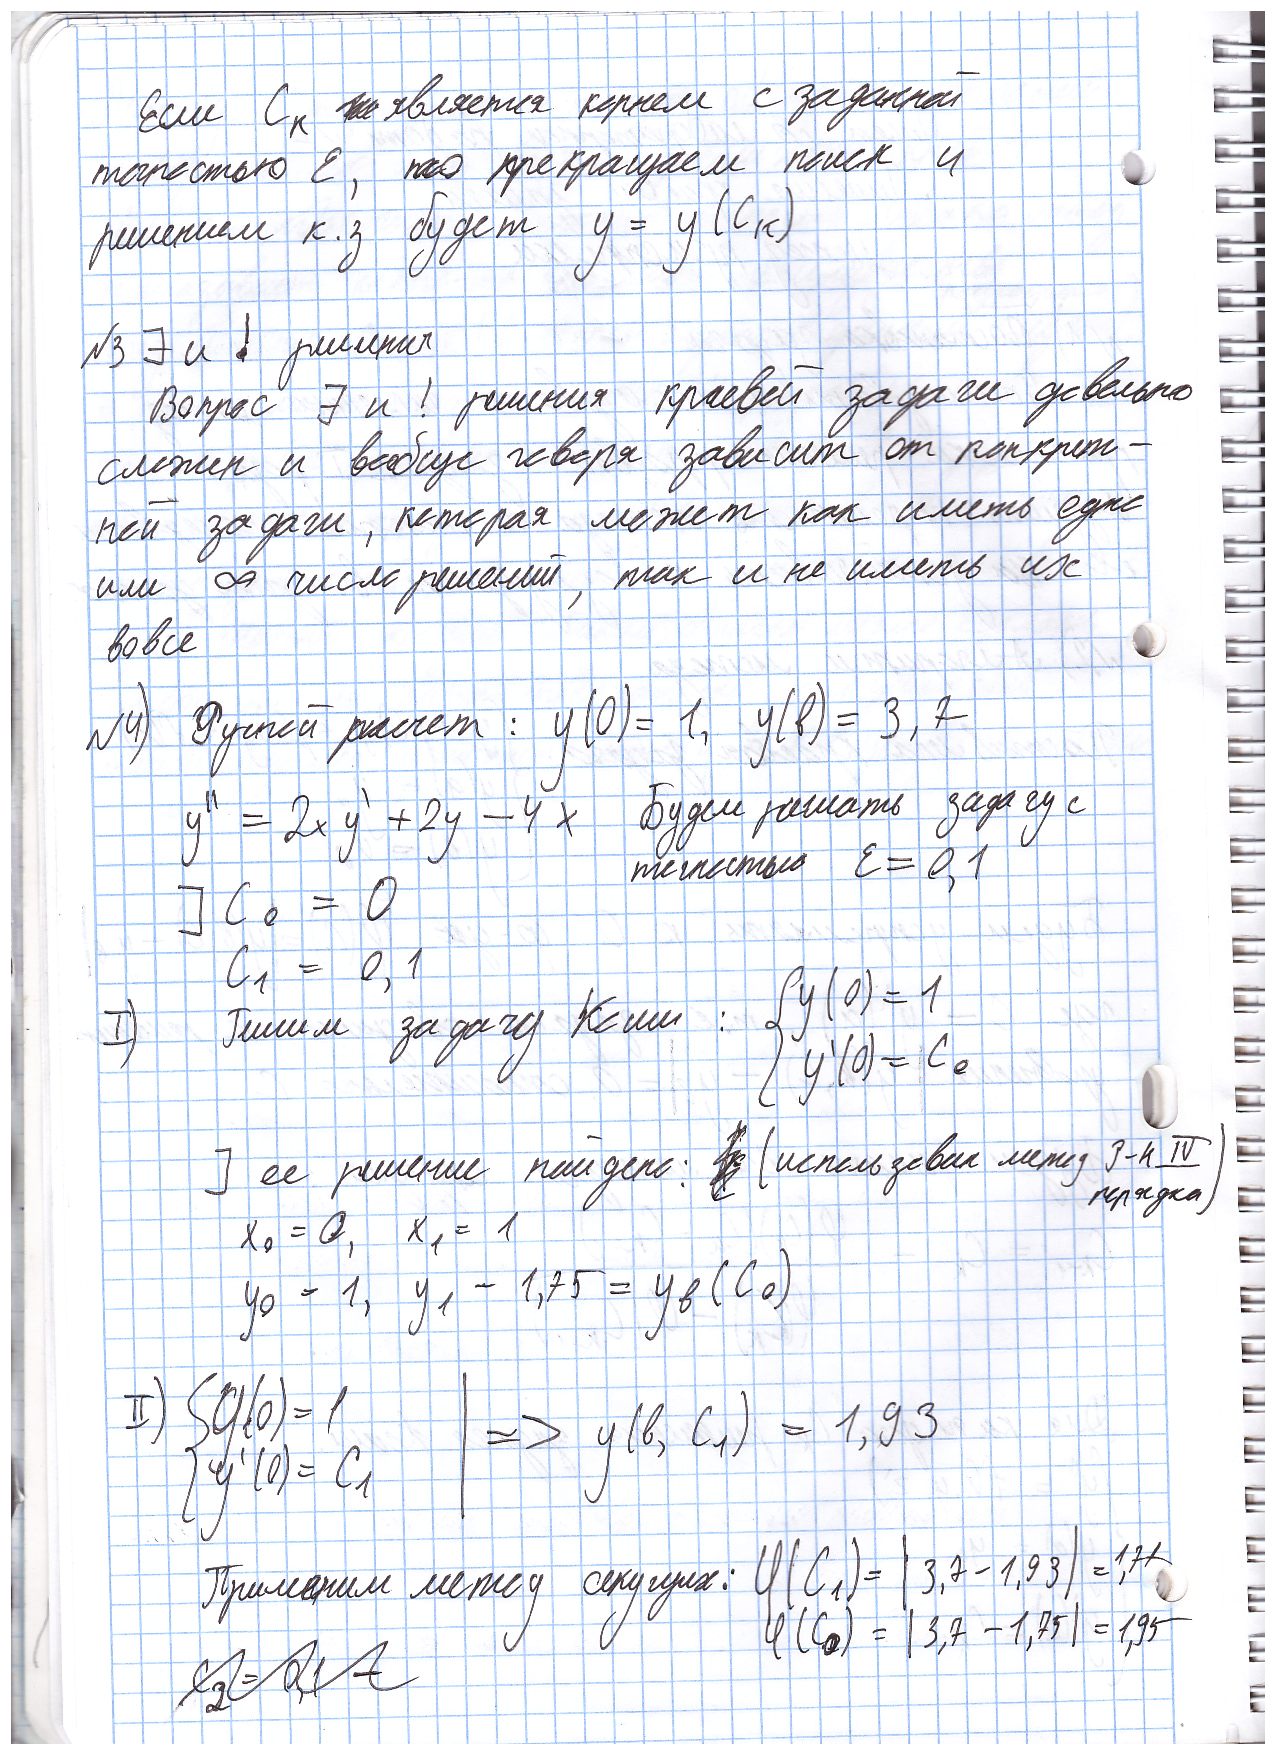 Если Cк является корнем с заданной
точностью ε, то прекращаем поиск и
решением к.з будет y = y(Cк)
№3 ∃ и ! решения
Вопрос ∃ и ! решения краевой задачи довольно
сложен и вообще говоря зависит от конкрет-
ной задачи, которая может как иметь одно
или ∞ число решений, так и не иметь их
вовсе
№4) Ручной расчет: y(0) = 1, y(b) = 3,7
y'' = 2xy' + 2y - 4x Будем решать задачу с
точностью ε = 0,1
] C₀ = 0
C₁ = 0,1
I) Решим задачу Коши : { y(0) = 1
y'(0) = C₀
] ее решение найдено: (использовав метод Р-К IV
порядка)
x₀ = 0, x₁ = 1
y₀ = 1, y₁ = 1,75 = yb(C₀)
II) { y(0) = 1
y'(0) = C₁ | => y(b, C₁) = 1,93
Применим метод секущих: φ(C₁) = |3,7 - 1,93| = 1,77
φ(C₀) = |3,7 - 1,75| = 1,95